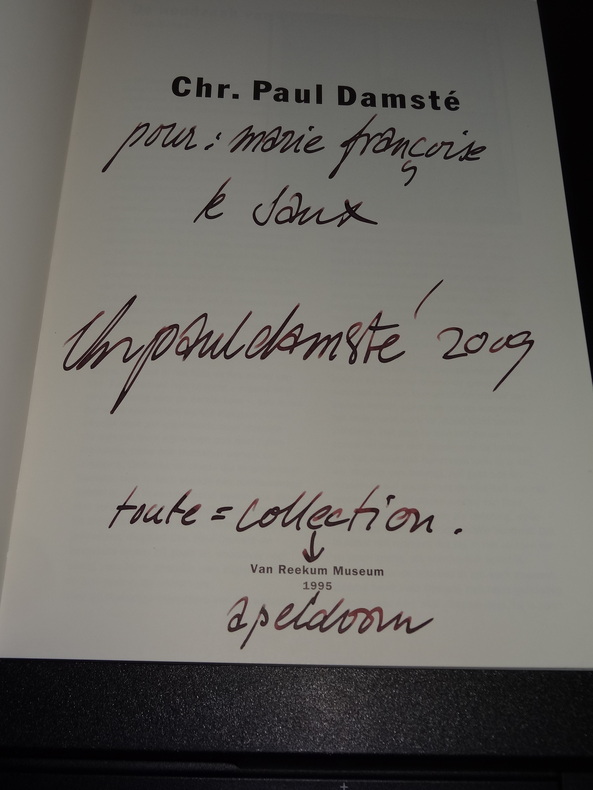 Chr. Paul Damsté
pour : marie françoise
le Saux
Chr paul damsté 2009
toute = collection .
↓
Van Reekum Museum
1995
apeldoorn